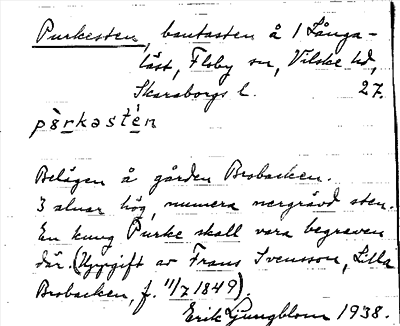 Purkesten, bautasten å 1 Långa-
täst, Floby sn, Vilske hd,
Skaraborgs l. 27.
pèrkəstén
Belägen å gården Brobacken.
3 alnar hög, numera nergrävd sten.
En kung Purke skall vara begraven
där. (Uppgift av Frans Svensson, Lilla
Brobacken, f. 11/7 1849).
Erik Ljungblom 1938.